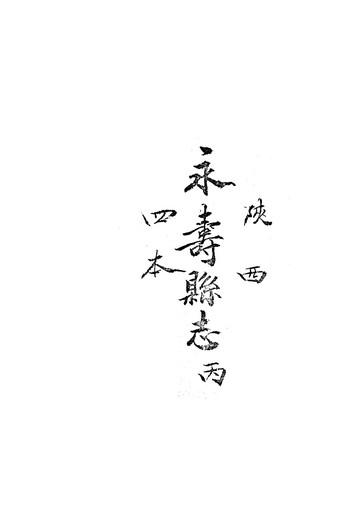 陝西
永壽縣志丙
四本